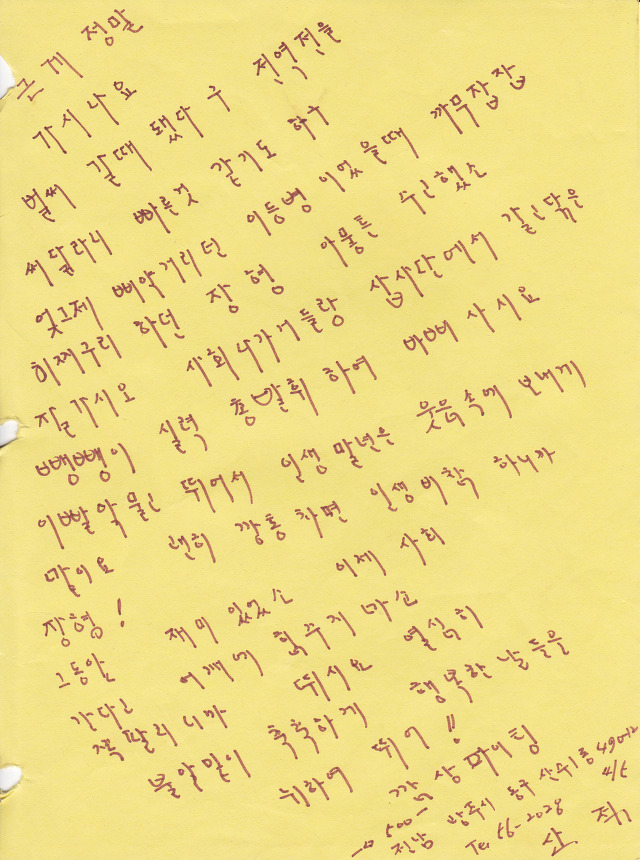 그게 정말
가시나요
벌써 갈때 됐다구 전역전을
써달라니 빠른것 같기도 하구
엊그제 삐약거리던 이등병이었을때 까무잡잡
히쭈구리 하던 장형 아뭏튼 수고했소
잘가시오 사회나가거들랑 삽사단에서 갈고닦은
뺑뺑이 실력 총발휘하여 바삐 사시요
이빨악물고 뛰어서 인생말년은 웃음속에 보내기
말이요 괜히 깡통차면 인생비참 하니까
장형!
그동안 재미있었소 이제 사회
간다고 어깨에 힘주지마소
쪽팔리니까 뛰시요 열심히
불알밑이 축축하게 행복한 날들을
위하여 뛰어!!
깜상 파이팅
500-
전남 광주시 동구 산수1동 49에2
Tel 56-2028 4/5